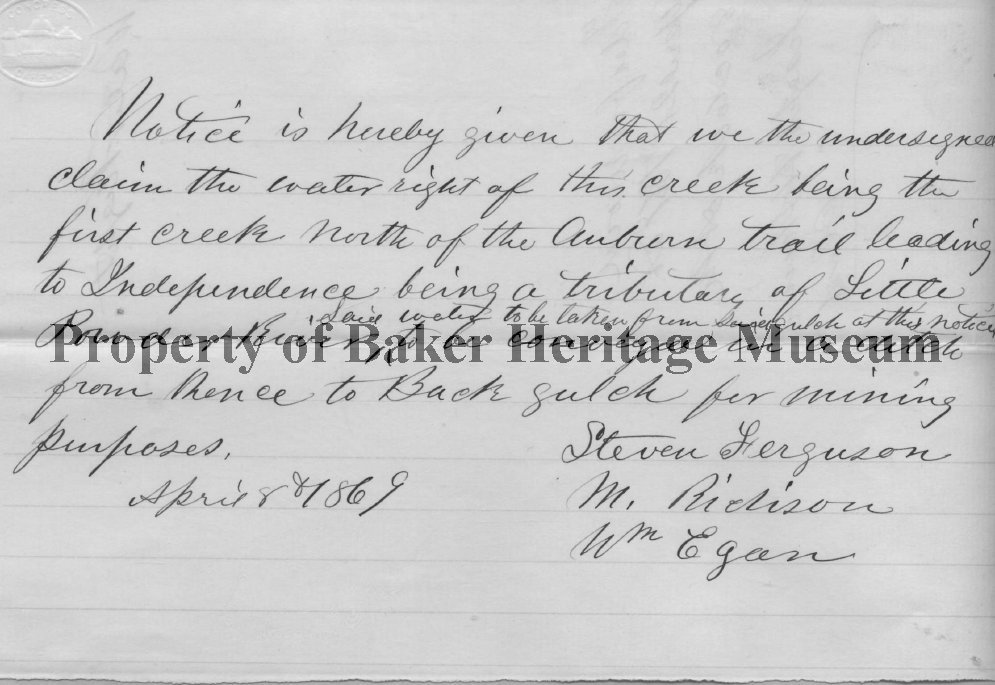 CONGRESS
Notice is hereby given that we the undersigned
claim the water right of this creek being the
first creek north of the Auburn trail leading
to Independence being a tributary of Little
said water to be taken from said gulch at this notice
Powder River, to be conveyed in a ditch
Property of Baker Heritage Museum
from thence to Buck gulch for mining
purposes.
Steven Ferguson
April 8th 1869
M. Richison
Wm Egan